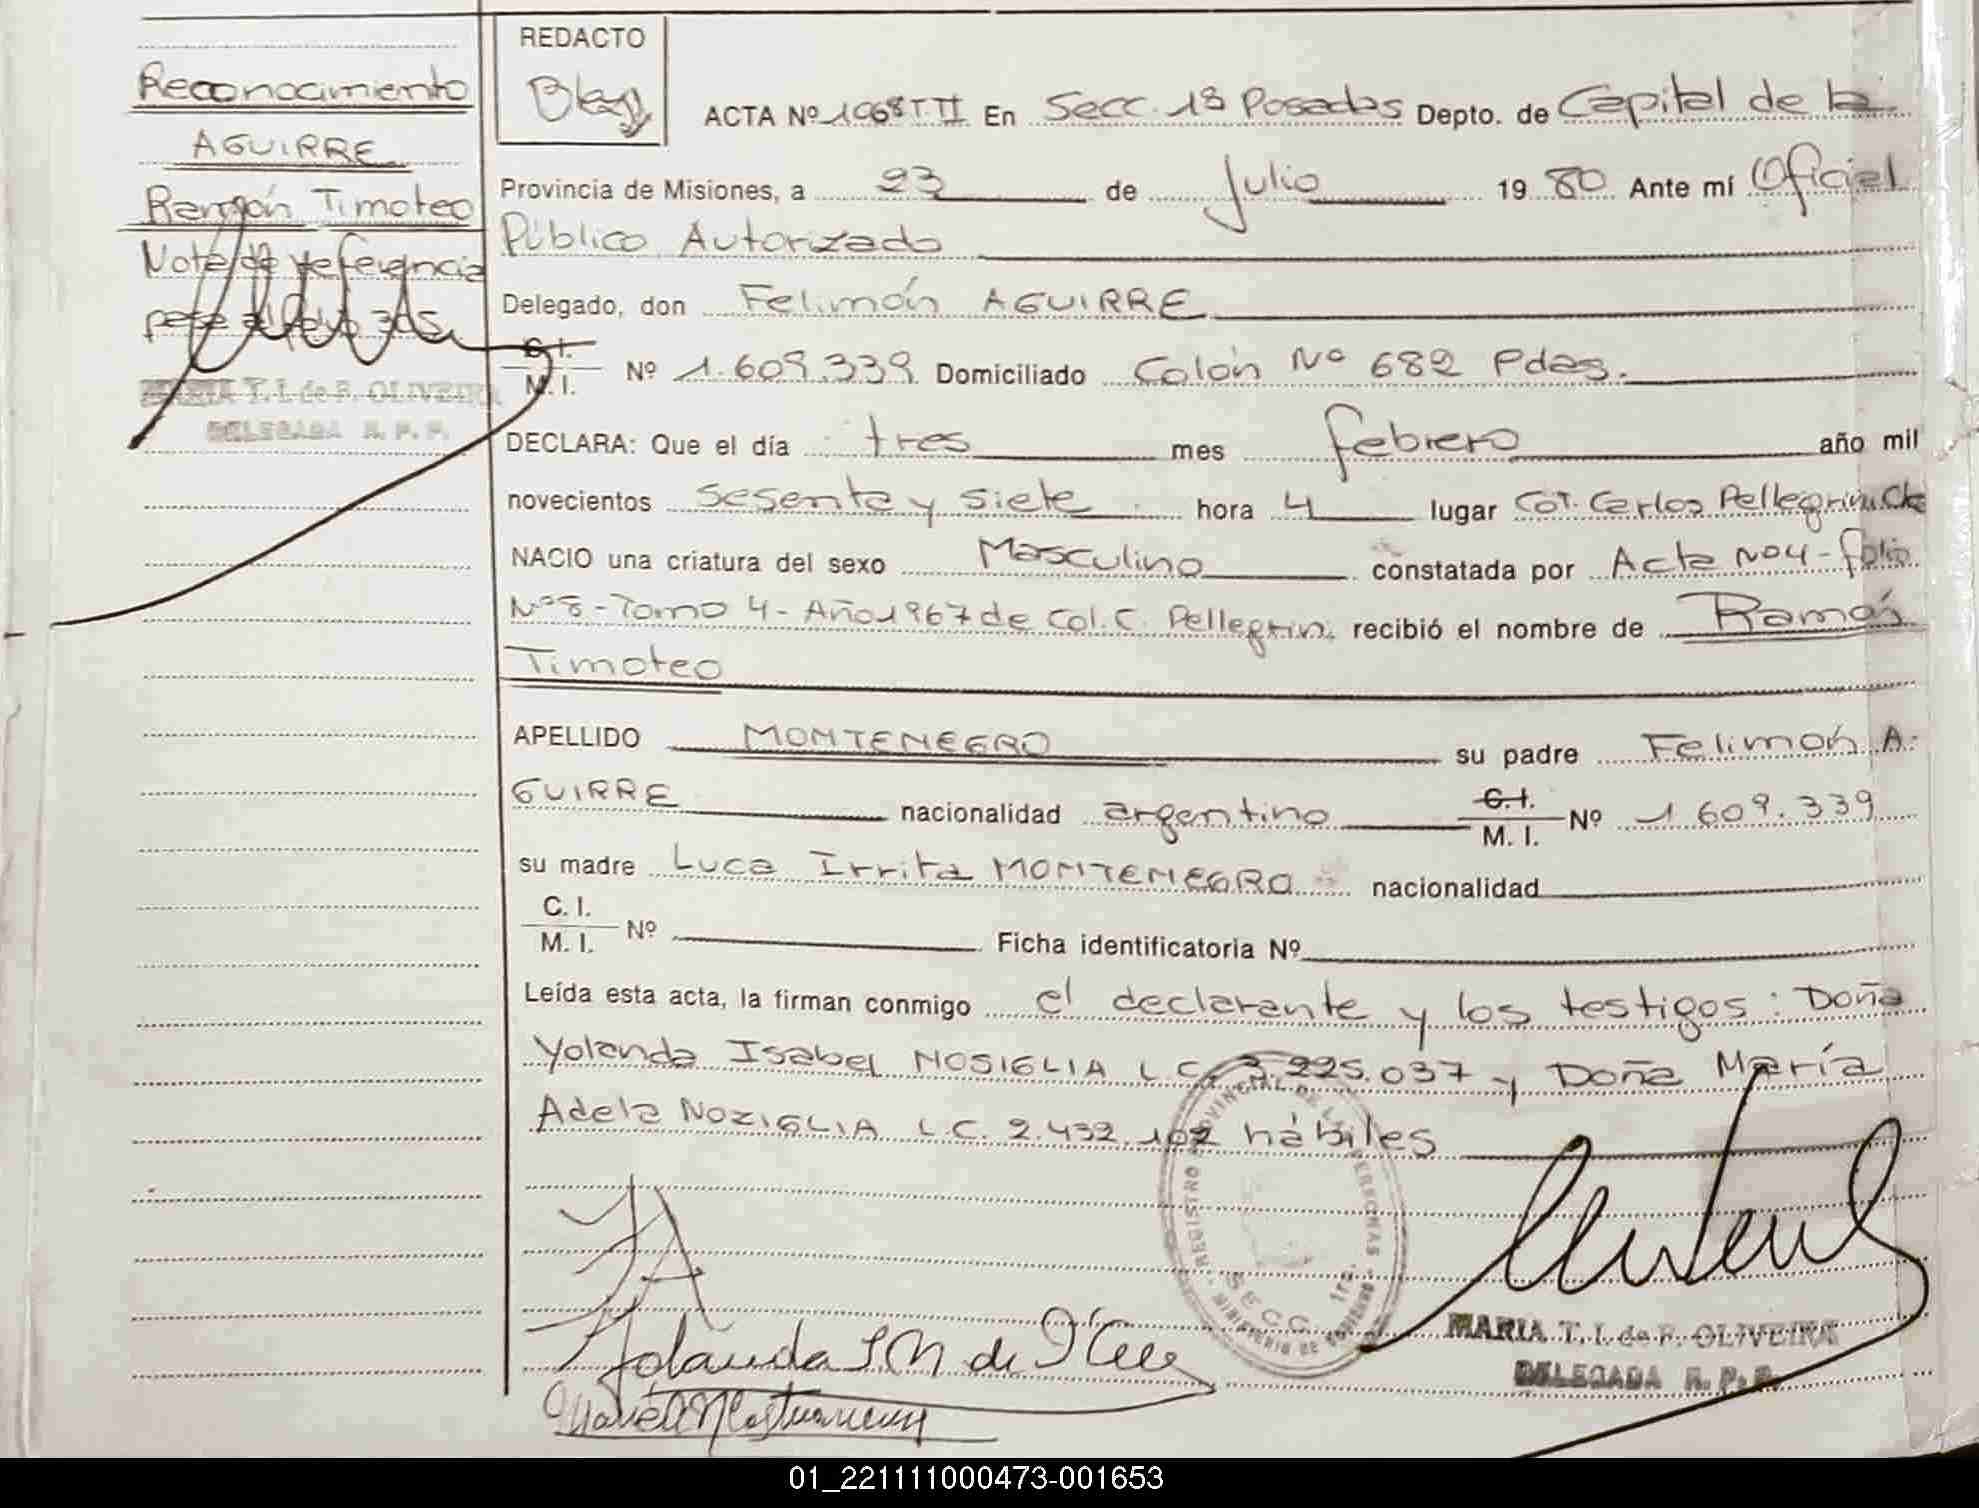 Reconocimiento
AGUIRRE
Ramón Timoteo
Nota de referencia
MARIA T. I. de P. OLIVEIRA
DELEGADA R. P. P.
REDACTO
ACTA Nº 1068 T.II En Secc. 1ª Posadas Depto. de Capital de la
Provincia de Misiones, a 23 de Julio 19 80 Ante mí Oficial
Público Autorizado
Delegado, don Felimón AGUIRRE
C. I.
M. I. Nº 1.609.339 Domiciliado Colón Nº 682 Pdas.
DECLARA: Que el día tres mes febrero año mil
novecientos sesenta y siete hora 4 lugar Col. Carlos Pellegrini
NACIO una criatura del sexo Masculino constatada por Acta Nº 4 - folio
Nº 8 - Tomo 4 - Año 1967 de Col. C. Pellegrini recibió el nombre de Ramón
Timoteo
APELLIDO MONTENEGRO su padre Felimón A-
GUIRRE nacionalidad argentino C. I.
M. I. Nº 1 609.339
su madre Luca Irrita MONTENEGRO nacionalidad
C. I.
M. I. Nº Ficha identificatoria Nº
Leída esta acta, la firman conmigo el declarante y los testigos: Doña
Yolanda Isabel NOSIGLIA L C. 3.225.037 y Doña María
Adela NOZIGLIA L.C. 2.432.102 hábiles
REGISTRO PROVINCIAL DE LAS PERSONAS
MINISTERIO DE GOBIERNO
SECC. 1ra.
MARIA T. I. de P. OLIVEIRA
DELEGADA R. P. P.
01_221111000473-001653